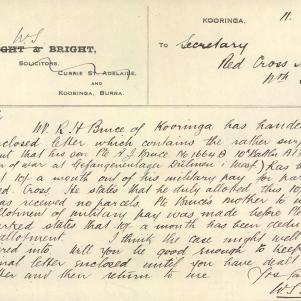 W.S
KOORINGA.
11.
& BRIGHT,
SOLICITORS.
CURRIE ST. ADELAIDE,
AND
KOORINGA, BURRA.
TO Secretary
Red Cross
Mr. R. H. Bruce of Kooringa has handed
enclosed letter which contains the rather sur
out that his son Pte A. J. Bruce No 1664 B 10th Battn A I
of war at Gefangenenlager Dülmen i West.) has
10/- a month out of his military pay for par
Cross. He states that he duly allotted this 10/
has received no parcels. Pte Bruce's mother to
allotment of military pay was made before Pte
states that 10/- a month has been deduc
allotment. I think the case might well
into. Will you be good enough to keep
letter enclosed until you have dealt
and then return to me
Yrs fa
W.S